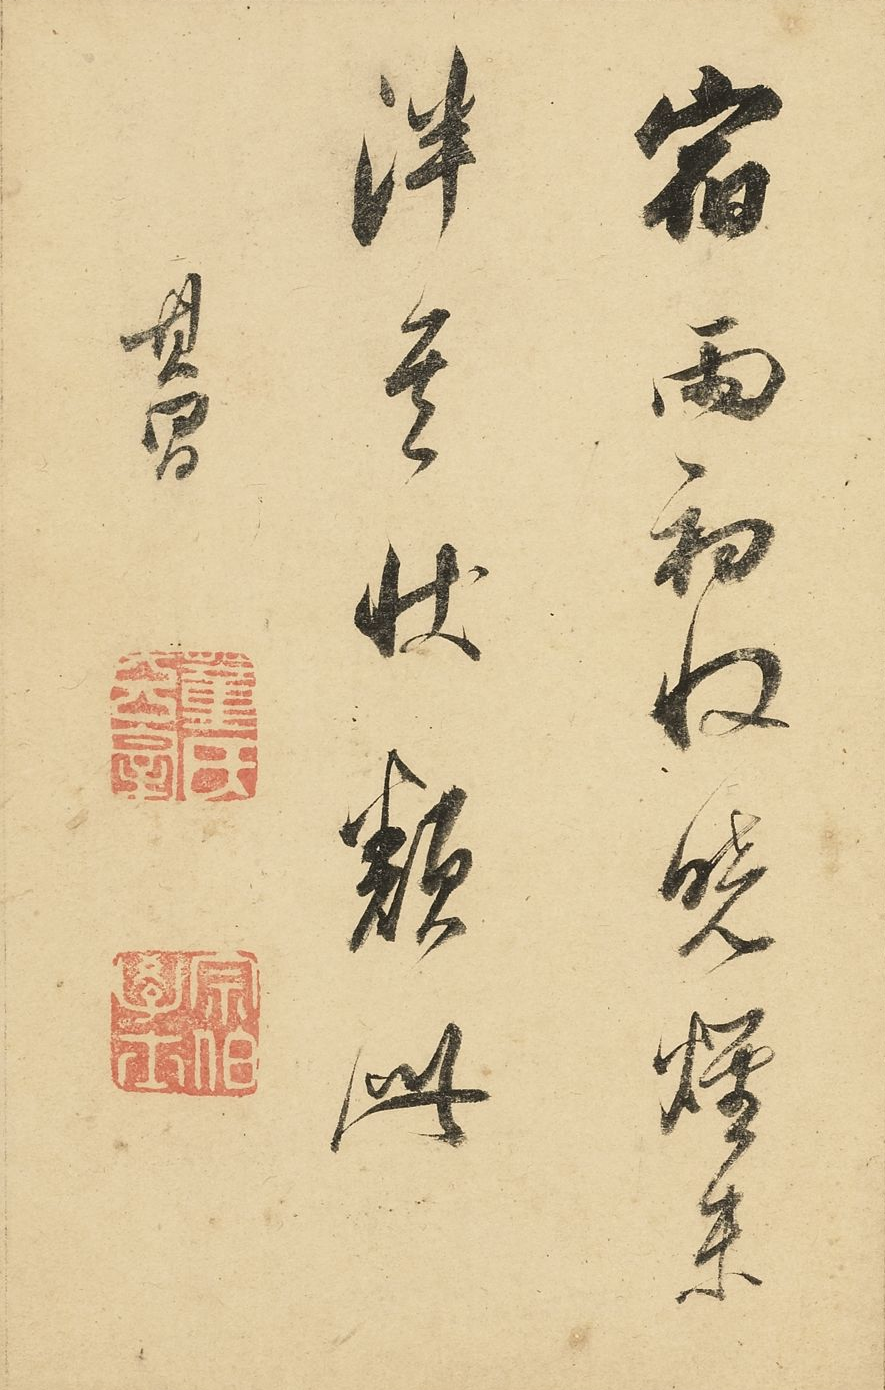 宿雨初收曉煙未
泮其狀類此
其昌
董氏玄宰
宗伯學士